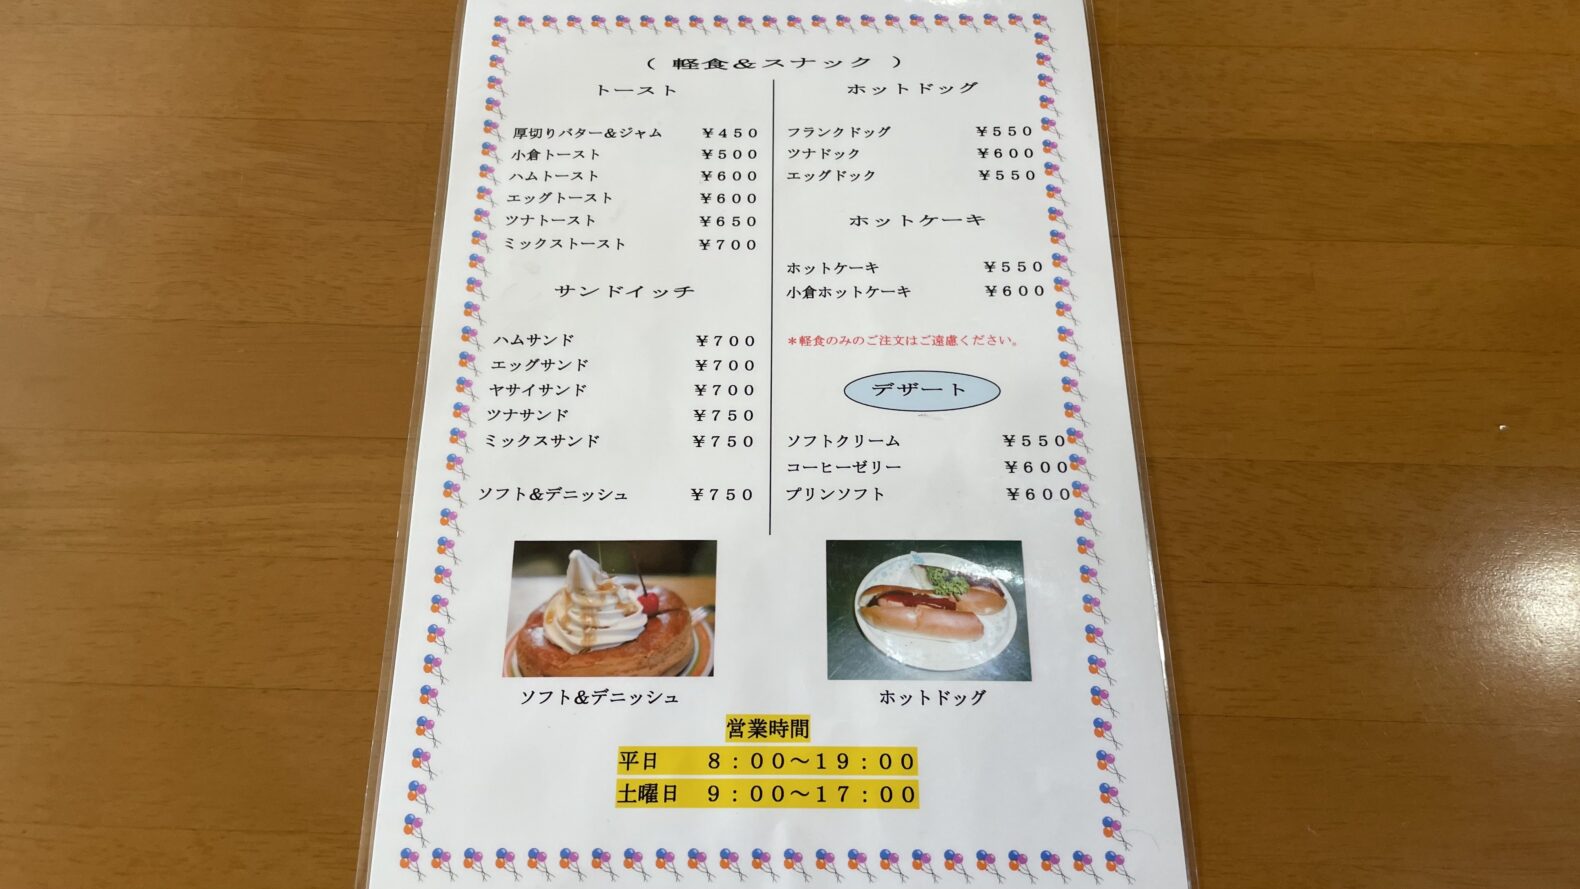 （ 軽食＆スナック ）
トースト
厚切りバター&ジャム ￥４５０
小倉トースト ￥５００
ハムトースト ￥６００
エッグトースト ￥６００
ツナトースト ￥６５０
ミックストースト ￥７００
サンドイッチ
ハムサンド ￥７００
エッグサンド ￥７００
ヤサイサンド ￥７００
ツナサンド ￥７５０
ミックスサンド ￥７５０
ソフト&デニッシュ ￥７５０
ホットドッグ
フランクドッグ ￥５５０
ツナドック ￥６００
エッグドック ￥５５０
ホットケーキ
ホットケーキ ￥５５０
小倉ホットケーキ ￥６００
＊軽食のみのご注文はご遠慮ください。
デザート
ソフトクリーム ￥５５０
コーヒーゼリー ￥６００
プリンソフト ￥６００
ソフト&デニッシュ
ホットドッグ
営業時間
平日 ８：００～１９：００
土曜日 ９：００～１７：００